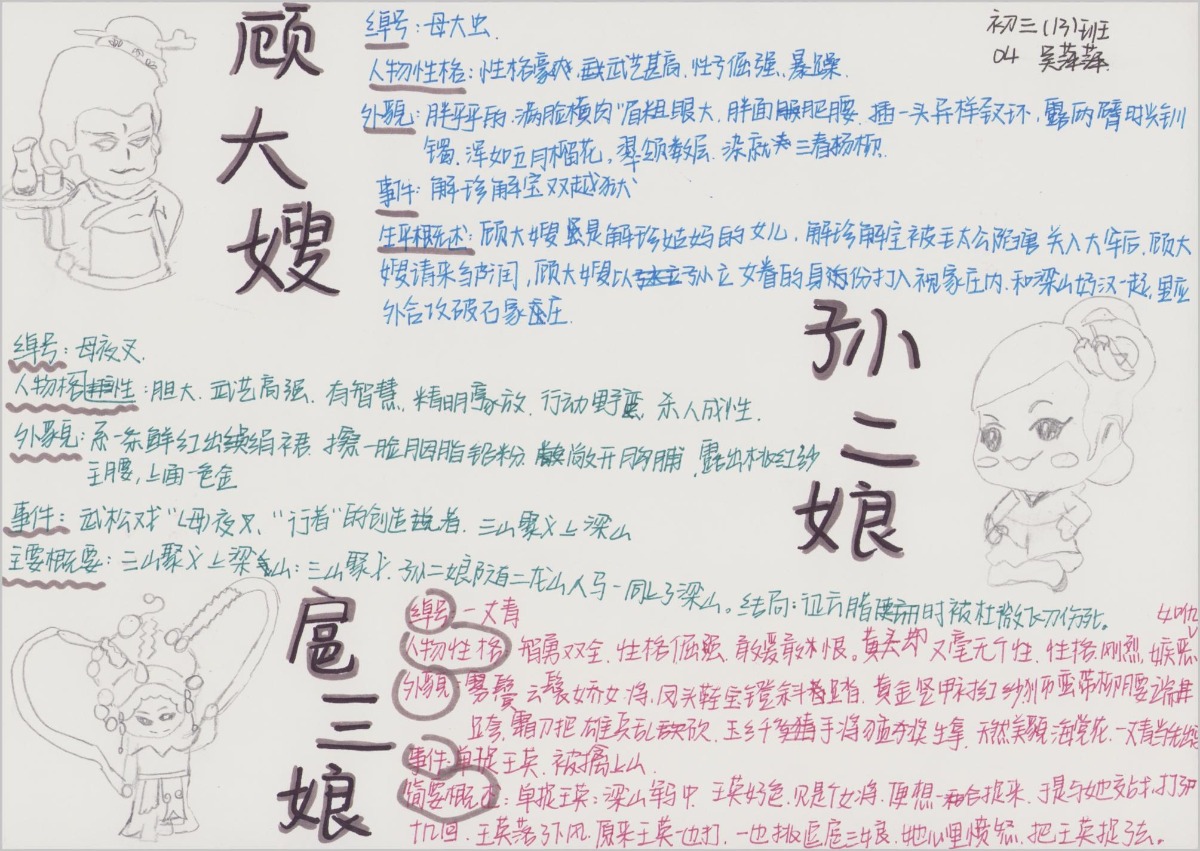 初三(13)班
04 吴萍萍
顾大嫂
绰号:母大虫.
人物性格:性格豪爽,武艺甚高,性子倔强,暴躁.
外貌:胖乎乎的,满脸横肉,眉粗眼大,胖面肥腰,插一头异样钗环,露两臂时兴钏
镯,浑如五月榴花,翠领数层,染就三春杨柳.
事件:解珍解宝双越狱
生平概述:顾大嫂是解珍姑妈的女儿,解珍解宝被毛太公陷害关入大牢后,顾大
嫂请来,顾大嫂以孙立女眷的身份打入祝家庄内,和梁山好汉一起,里应
外合攻破石家庄.
孙二娘
绰号:母夜叉.
人物格性:胆大,武艺高强,有智慧,精明豪放,行动野蛮,杀人成性.
外貌:系一条鲜红出绢裙,搽一脸胭脂铅粉,敞开胸脯,露出桃红纱
主腰,上面一色金
事件:武松戏"母"夜叉,"行者"的创造者,三山聚义上梁山
主要概要:三山聚义上梁山:三山聚义,孙二娘随二龙山人马一同上了梁山。结局:征云时被杜微飞刀伤死。
扈三娘
绰号 一丈青
人物性格 智勇双全,性格倔强,敢爱敢恨。又毫无个性,性格刚烈,嫉恶如仇
外貌 雾鬓云鬟娇女将,凤头鞋宝镫斜踏,黄金坚甲衬红纱,狮蛮带柳腰端
跨,霜刀把雄兵乱砍,玉手将猛将生拿,天然美貌海棠花,一丈青当先
事件:单捉王英,被擒上山.
简要概述:单捉王英:梁山军中,王英好色,见是个女将,便想一合捉来,于是与她交战,打到
十几回,王英落了下风,原来王英一边打,一边挑逗扈三娘,她心里愤怒,把王英捉了去。